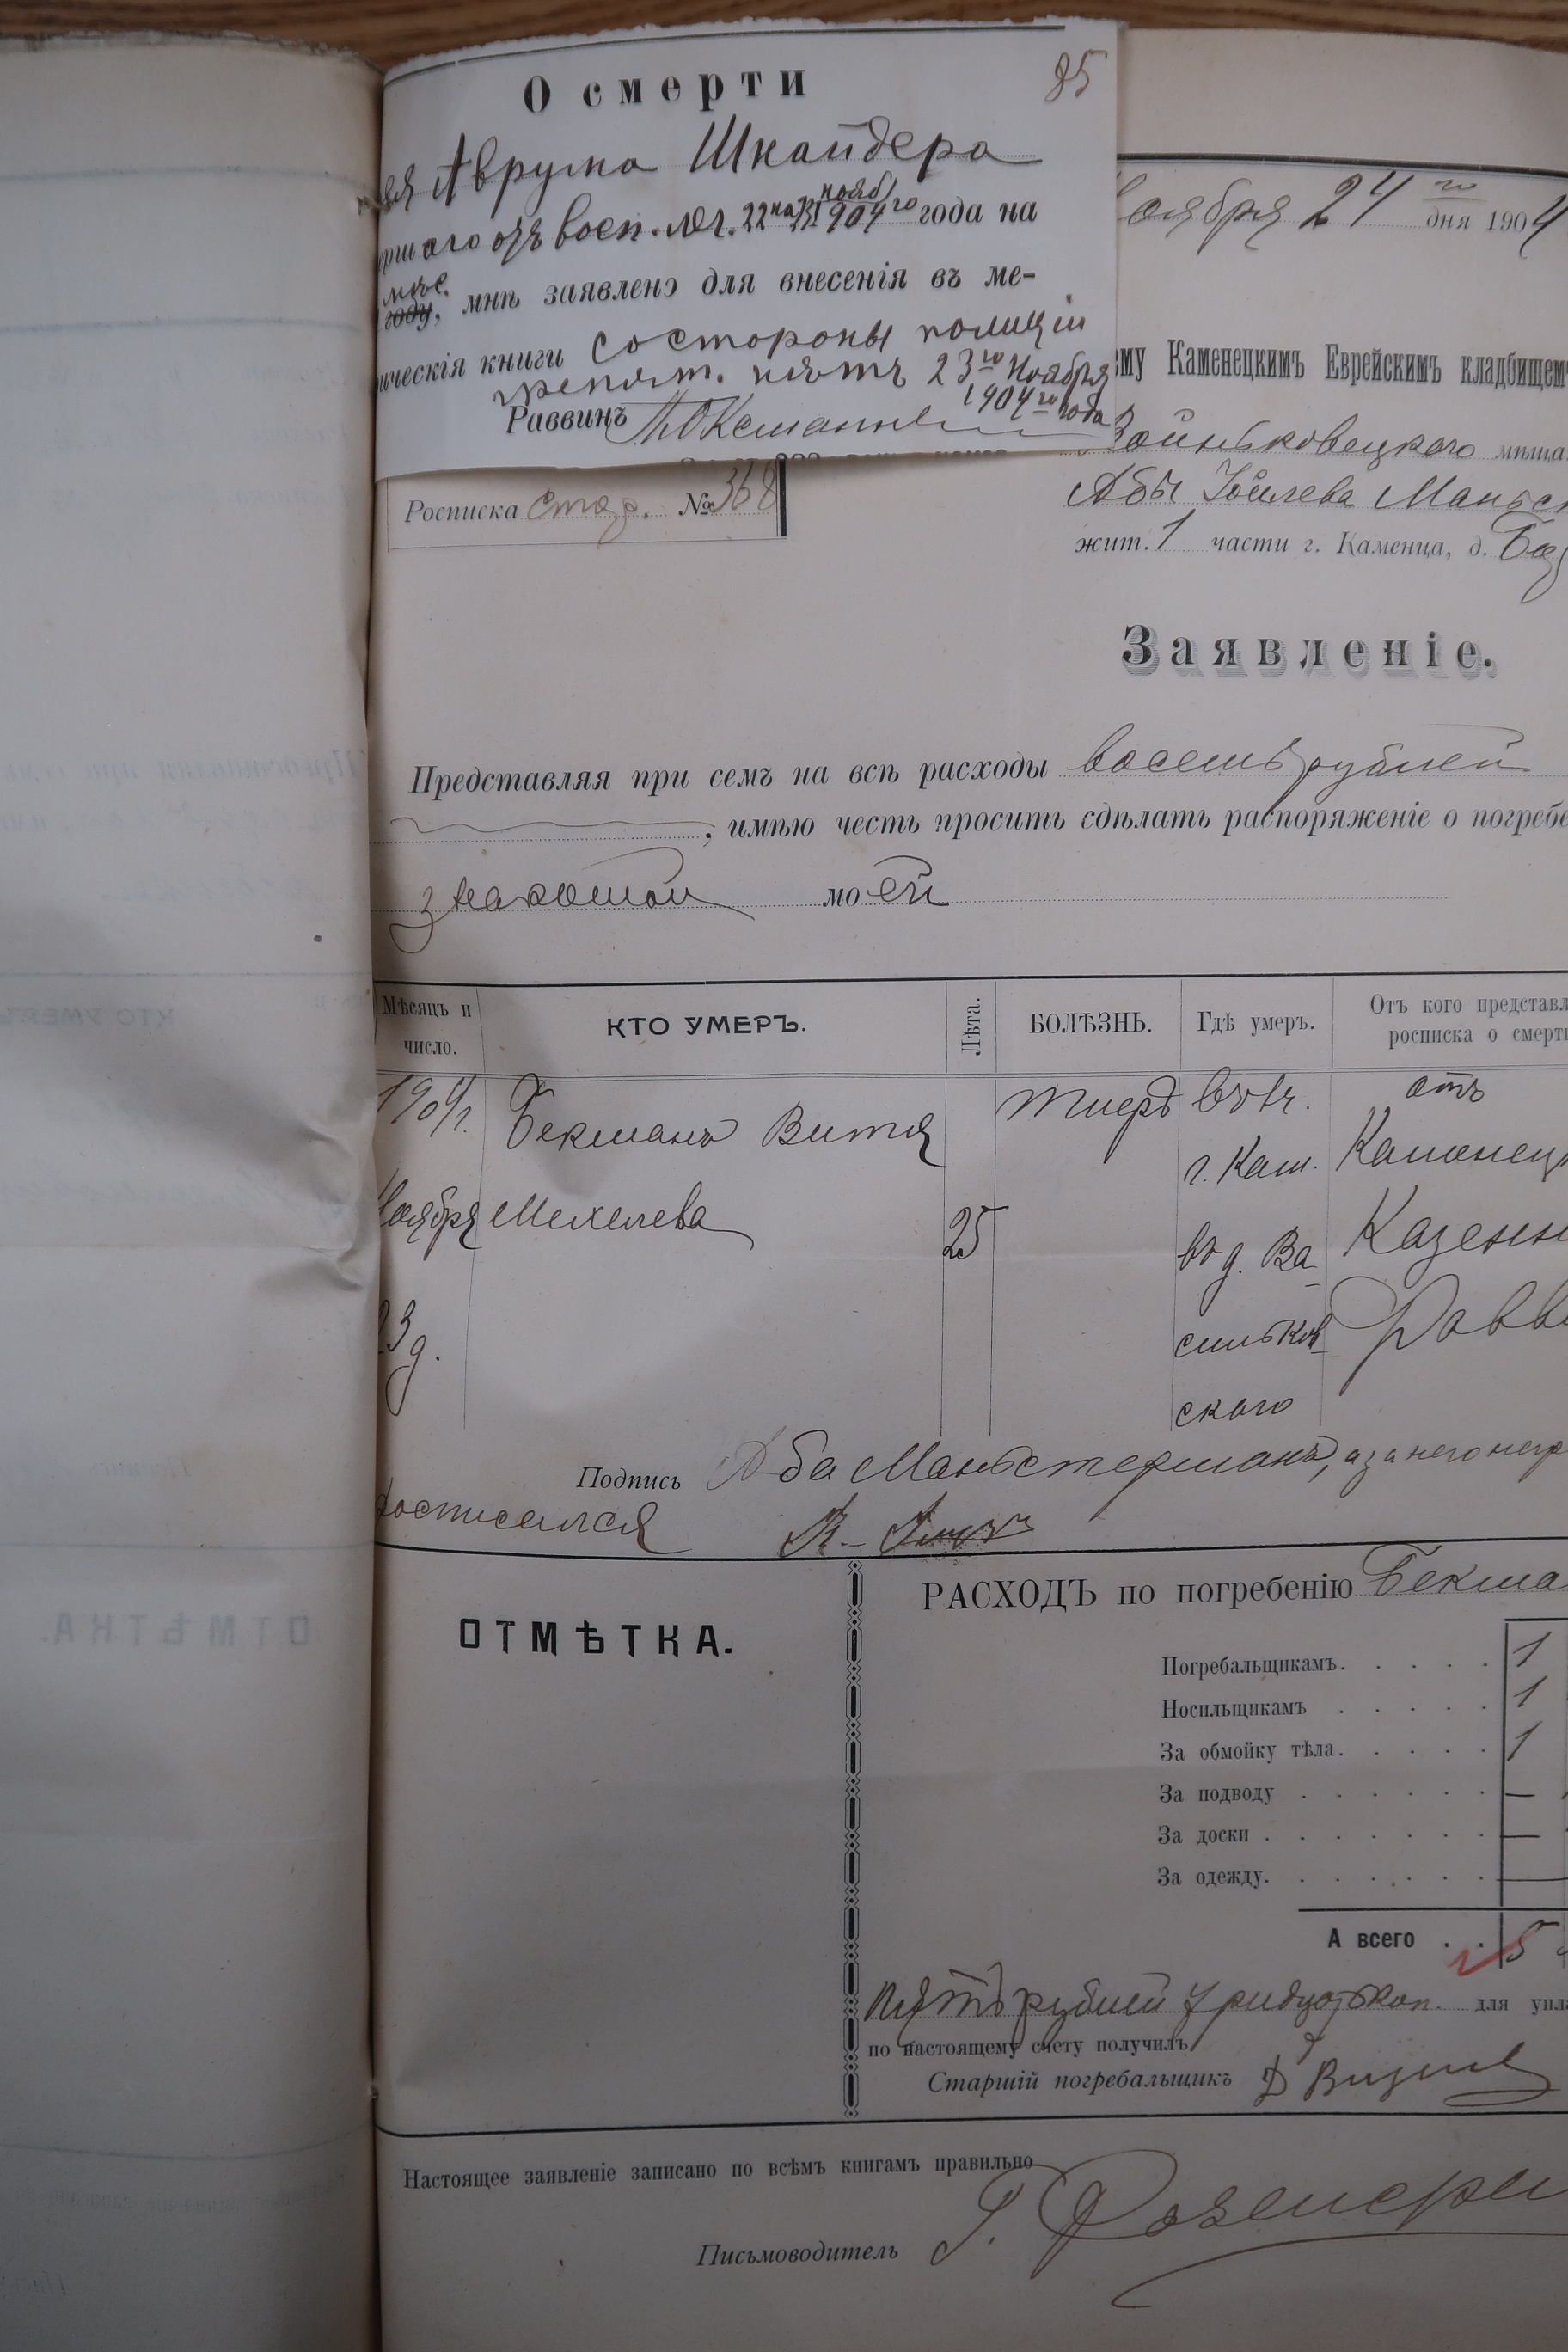 О смерти
85
Аврума Шнайдера
ршаго отъ восп. лег. 22 на 23 нояб 1904го года на
мѣс. году, мнѣ заявлено для внесенія въ ме-
ическія книги со стороны полиціи
препят. нѣтъ 23го Ноября
1904го года
Раввинъ
оября 24го дня 1904
ему Каменецкимъ Еврейскимъ кладбищем
Войньковецкаго мѣща
Росписка Стар. № 368
Абы Іойлева Маньст
жит. 1 части г. Каменца, д.
Заявленіе.
Представляя при семъ на всѣ расходы восемь рублей
, имѣю честь просить сдѣлать распоряженіе о погребе
знакомой моей
Мѣсяцъ и число.
КТО УМЕРЪ.
Лѣта.
БОЛѢЗНЬ.
Гдѣ умеръ.
Отъ кого представл
росписка о смерти
1904г. Бекманъ Витя
отъ
г. Кам. Каменец
Ноября Мехелева 25
въ д. Ва Казенн
23 д.
сильков Равви
скаго
Подпись Аба Маньстерманъ, а за него негр
Росписался
ОТМѢТКА.
РАСХОДЪ по погребенію Бекма
Погребальщикамъ. 1
Носильщикамъ 1
За обмойку тѣла. 1
За подводу —
За доски —
За одежду. —
А всего 5
Пять рублей тридцать коп. для упла
по настоящему счету получилъ
Старшій погребальщикъ
Настоящее заявленіе записано по всѣмъ книгамъ правильно
Письмоводитель